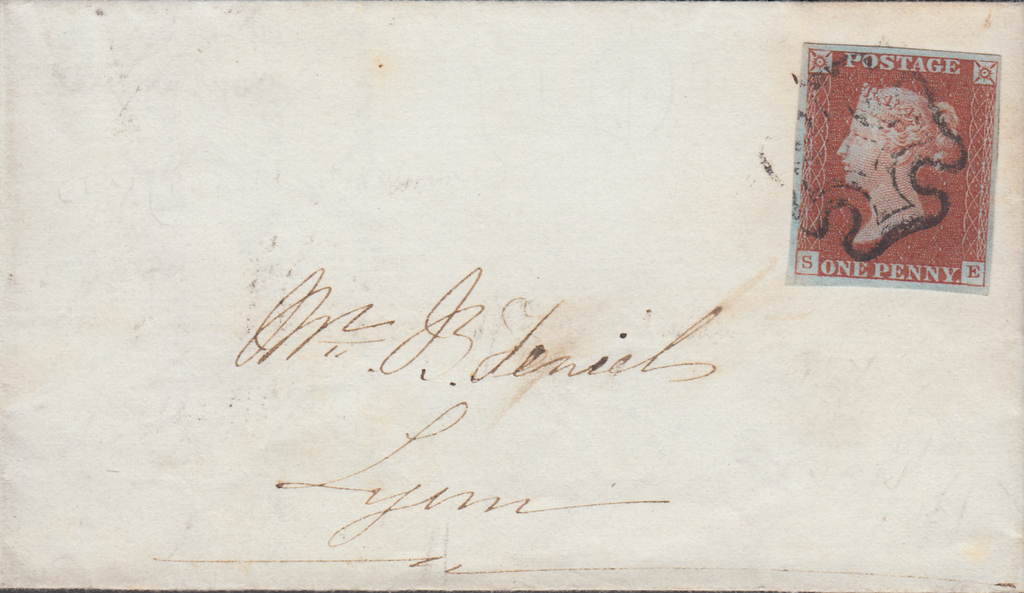 POSTAGE
S ONE PENNY. E
Mr. J. B.
Lynn